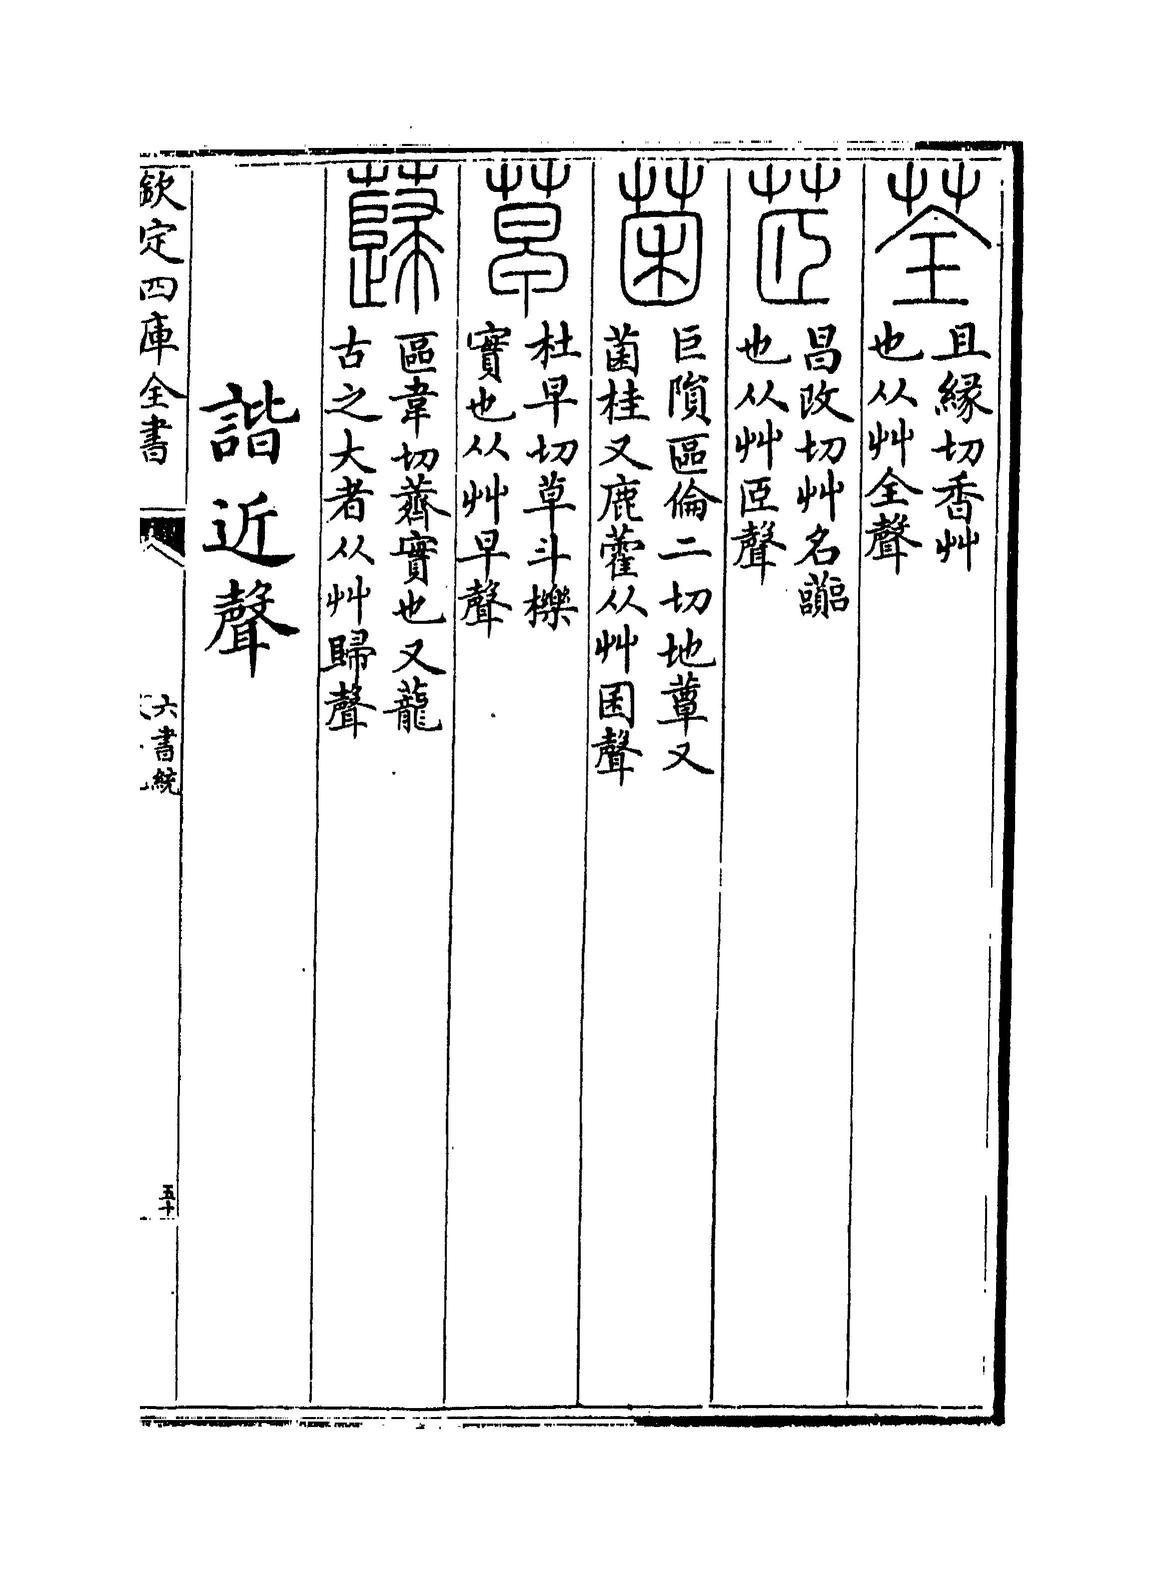 荃
且縁切香艸
也从艸全聲
茝
昌改切艸名
也从艸𦣞聲
菌
巨隕區倫二切地蕈又
菌桂又鹿藿从艸囷聲
草
杜早切草斗櫟
實也从艸早聲
蘬
區韋切薺實也又蘢
古之大者从艸歸聲
諧近聲
欽定四庫全書
六書統
五十